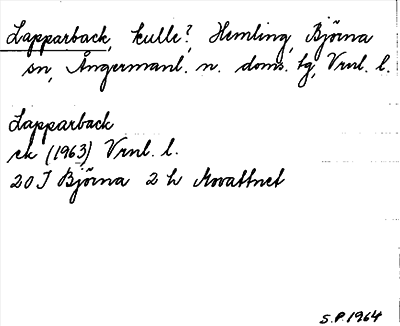 Lapparback, kulle?, Hemling, Björna
sn, Ångermanl. n. doms. tg, Vrnl. l.
Lapparback
ek (1963) Vrnl. l.
20 J Björna 2 h Movattnet
S.P. 1964